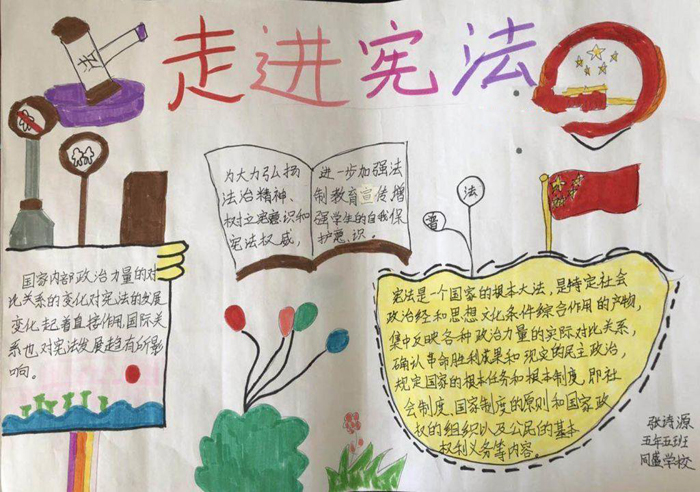 走进宪法
法
为大力弘扬
法治精神、
树立宪意识和
宪法权威,
进一步加强法
制教育宣传增
强学生的自我保
护意识。
普
法
国家内部政治力量的对
比关系的变化对宪法的发展
变化,起着直接作用,国际关
系也对宪法发展趋有所影
响。
宪法是一个国家的根本大法,是特定社会
政治经和思想文化条件综合作用的产物,
集中反映各种政治力量的实际对比关系,
确认革命胜利成果和现实的民主政治,
规定国家的根本任务和根本制度,即社
会制度,国家制度的原则和国家政
权的组织以及公民的基本
权利义务等内容。
张诗源
五年五班
同盛学校